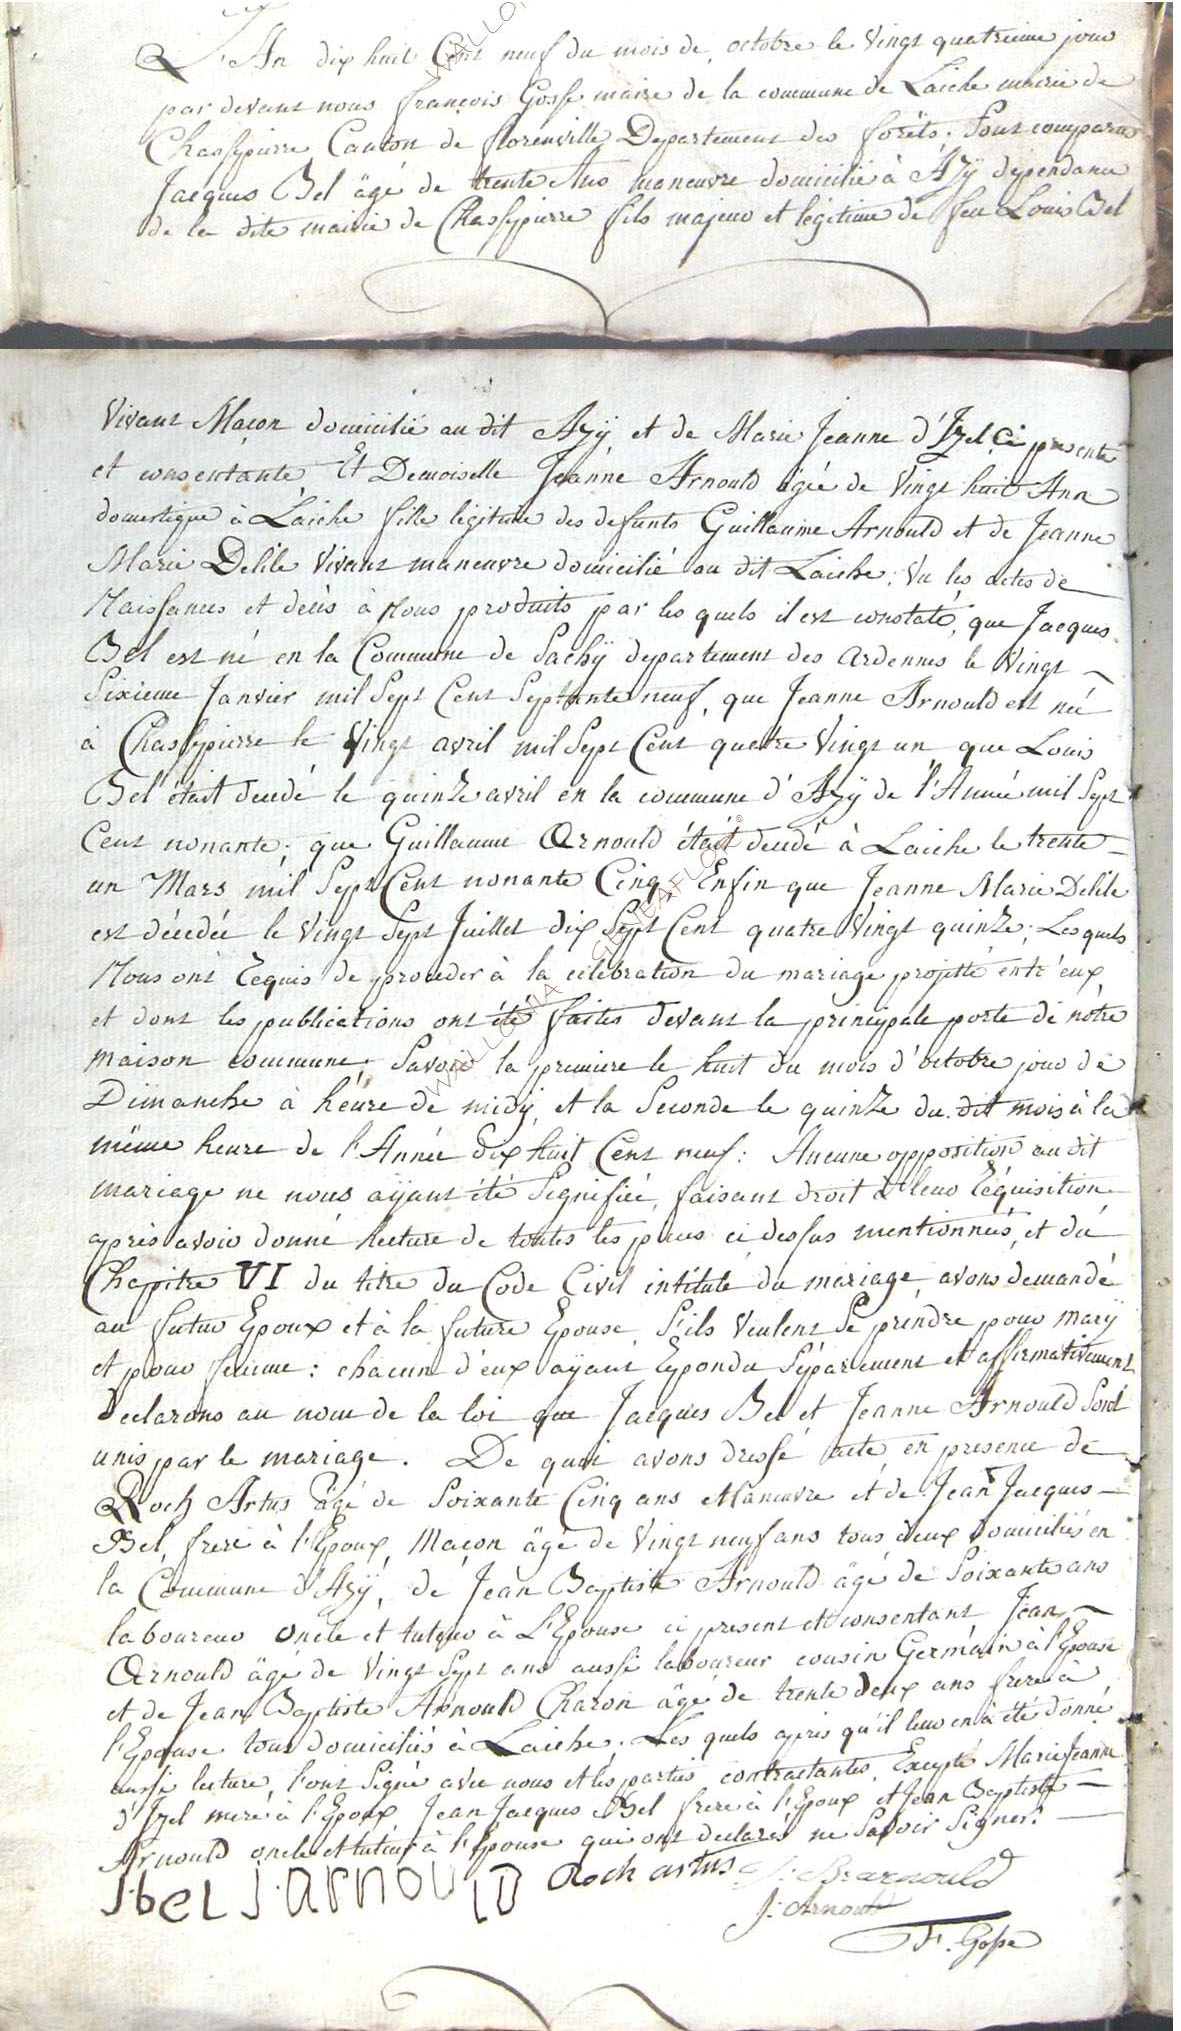 L'An dix huit Cent neuf du mois de octobre le Vingt quatrieme jour
par devant nous françois Gosse maire de la commune de Laiche mairie de
Chassepierre Canton de florenville Departement des forêts. Sont comparu
Jacques Bel âgé de trente Ans maneuvre domicilié à Azÿ dependance
de la dite mairie de Chassepierre fils majeur et légitime de feu Louis Bel
Vivant Maçon domicilié au dit Azÿ et de Marie Jeanne d'Izel ci presente
et consentante Et Demoiselle Jeanne Arnould âgée de Vingt huit Ans
domestique à Laiche fille légitime des defunts Guillaume Arnould et de Jeanne
Marie Delile Vivant maneuvre domicilié au dit Laiche. Vu les actes de
Naissances et décès à Nous produits par les quels il est constaté, que Jacques
Bel est né en la Commune de Sachÿ departement des ardennes le Vingt
Sixieme Janvier mil Sept Cent Septante neuf, que Jeanne Arnould est née
à Chassepierre le Vingt avril mil Sept Cent quatre Vingt un que Louis
Bel était decedé le quinze avril en la commune d'Azÿ de l'Année mil Sept
Cent nonante; que Guillaume Arnould était decedé à Laiche le trente
un Mars mil Sept Cent nonante Cinq. Enfin que Jeanne Marie Delile
est décedée le Vingt Sept Juillet dix Sept Cent quatre Vingt quinze. Les quels
Nous ont requis de proceder à la célébration du mariage projetté entr'eux
et dont les publications ont été faites devant la principale porte de nôtre
maison commune; Savoir la premiere le huit du mois d'octobre jour de
Dimanche à heure de midÿ, et la Seconde le quinze du dit mois à la
même heure de l'Année dix huit Cent neuf: Aucune opposition au dit
mariage ne nous aÿant été Signifiée, faisant droit à leur réquisition
après avoir donné lecture de toutes les pieces ci dessus mentionnées, et du
Chapitre VI du titre du Code Civil intitulé du mariage, avons demandé
au futur Epoux et à la future Epouse S'ils Veulent Se prendre pour marÿ
et pour femme: chacun d'eux aÿant repondu Séparement et affirmativement
Declarons au nom de la loi que Jacques Bel et Jeanne Arnould Sont
unis par le mariage. De quoi avons dressé acte en presence de
Roch Artus âgé de Soixante Cinq ans Maneuvre et de Jean Jacques
Bel, frere à l'Epoux, Maçon âgé de Vingt neuf ans tous deux domiciliés en
la Commune d'Azÿ, de Jean Baptiste Arnould âgé de Soixante ans
laboureur oncle et tuteur à L'Epouse ci present et consentant Jean
Arnould âgé de Vingt Sept ans aussi laboureur cousin Germain à l'Epouse
et de Jean Baptiste Arnould Charon âgé de trente deux ans frere à
l'Epouse tous domiciliés à Laiche. Les quels après qu'il leur en à été donné
aussi lecture, l'ont Signé avec nous et les parties contractantes, Excepté Marie Jeanne
d'Izel mere à l'Epoux Jean Jacques Bel frere à l'Epoux et Jean Baptiste
Arnould oncle et tuteur à l'Epouse qui ont declarés ne Savoir Signer.
J.bel J.arnould Roch artus J. B. arnould
J. Arnould
F. Gosse